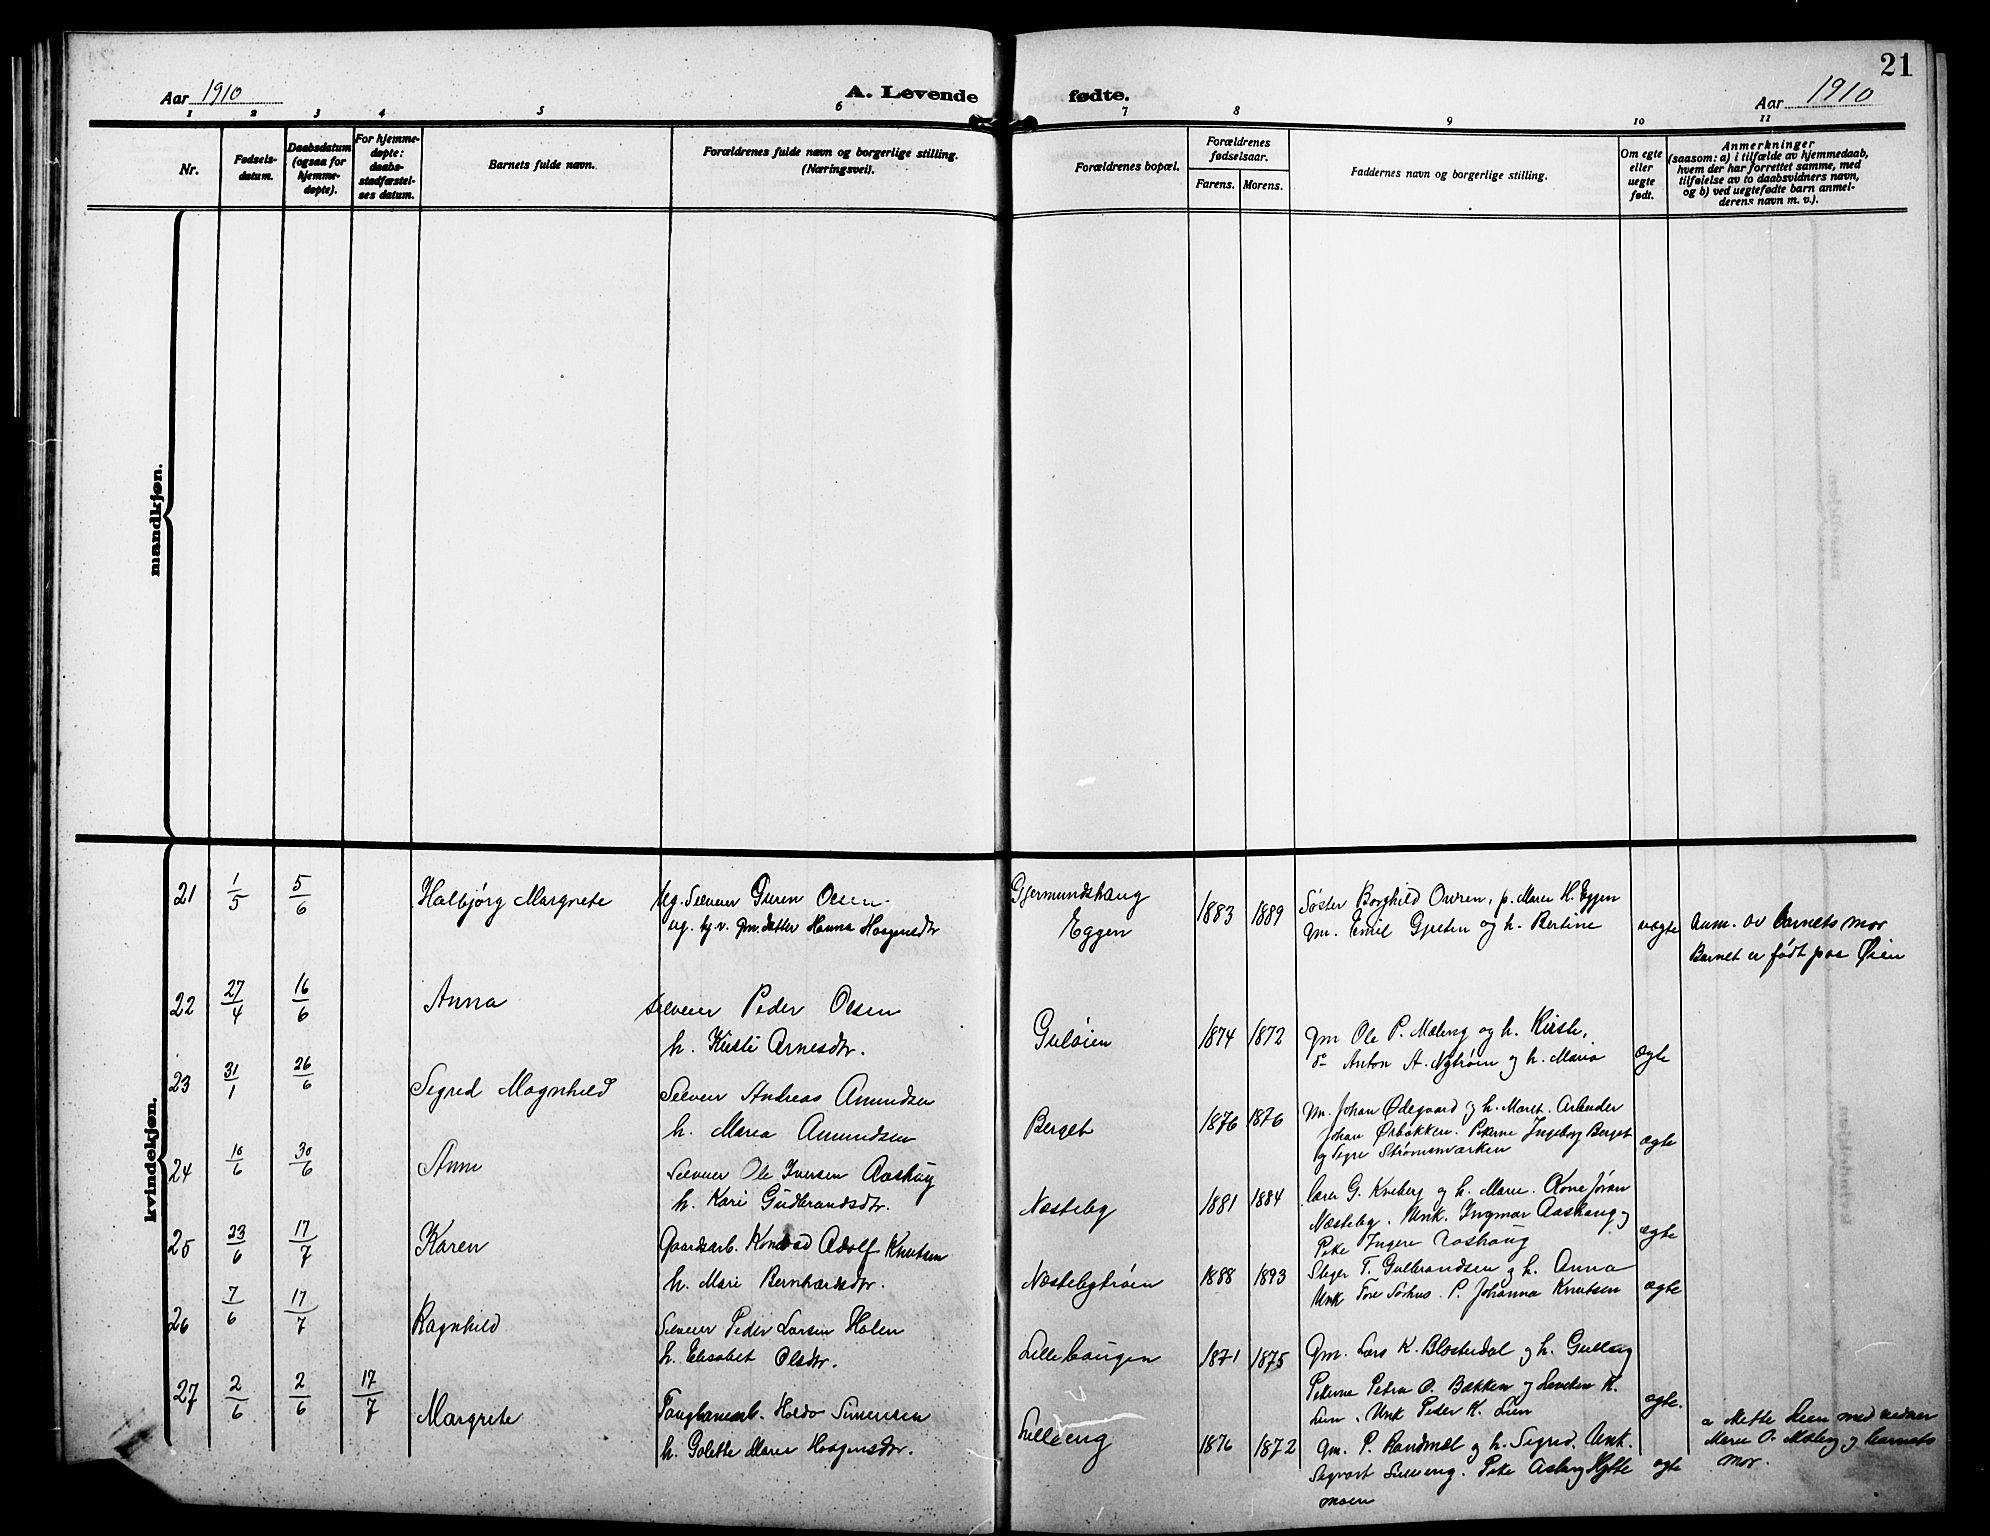 21
Aar 1910
A. Levende fødte.
Aar 1910
1 2 3 4 5 6 7 8 9 10 11
Nr.
Fødsels-
datum.
Daabsdatum
(ogsaa for
hjemme-
døpte).
For hjemme-
døpte:
daabs-
stadfæstel-
ses datum.
Barnets fulde navn.
Forældrenes fulde navn og borgerlige stilling.
(Næringsvei).
Forældrenes bopæl.
Forældrenes
fødselsaar.
Farens. Morens.
Faddernes navn og borgerlige stilling.
Om egte
eller
uegte
født.
Anmerkninger
(saasom: a) i tilfælde av hjemmedaab,
hvem der har forrettet samme, med
tilføielse av to daabsvidners navn,
og b) ved uegtefødte barn anmel-
derens navn m. v.).
mandkjøn.
kvindekjøn.
21 1/5 5/6 Halbjørg Margrete
Ug. Selveier Guren Olsen
ug. datter Hanna
Gjermundshaug
Eggen
1883 1889
Søster Borghild p. Maren H. Eggen
Gm. Emil og h. Bertine
uegte
Anm. av barnets mor
Barnet er født paa Øien
22 27/4 16/6 Anna
Selveier Peder Olsen
h. Kirsti Arnesdtr.
Guløien
1874 1872
Gm Ole P. Moleng og h. Kirsti,
do Anton A. Nytrøen og h. Maria
ægte
23 31/1 26/6 Sigrid Magnhild
Selveier Andreas Amundsen
h. Maria Amundsen
Berget
1876 1876
Gm. Johan Ødegaard og h. Maret. Arbeider
Johan Ørbakken. Pikerne Ingeborg Berget
og Strømsmarken
ægte
24 10/6 30/6 Anne
Selveier Ole Iversen Aashaug
h. Kari Gudbrandsdtr.
Næsteby
1881 1884
lærer G. Kneberg og h. Marie. Kone Jøran
Næsteby. Unk. Ingmar Aashaug og
Pike Aashaug
ægte
25 23/6 17/7 Karen
Gaardsarb. Konrad Adolf Knutsen
h. Mari Bernhardsdtr.
Næstebytrøen
1888 1893
T. Gulbrandsen og h. Anna
Unk Tore P. Johanna Knutsen
ægte
26 7/6 17/7 Ragnhild
Selveier Peder Larsen Holen
h. Elisabet Olsdtr.
Lillehaugen
1871 1875
Gm. Lars K. Blæsterdal og h.
Pikerne Petra O. Bakken og K.
Lien. Unk Peder K. Lien
ægte.
27 2/6 2/6 17/7 Margrete
Simensen
h. Golette Marie Haagensdtr.
Lilleeng
1876 1872
Gm. P. Randmæl og h. Sigrid. Unk.
Lilleeng. Pike Hytte
moen
ægte
a Mette Lien med vidner
O. Moleng og barnets
mor.